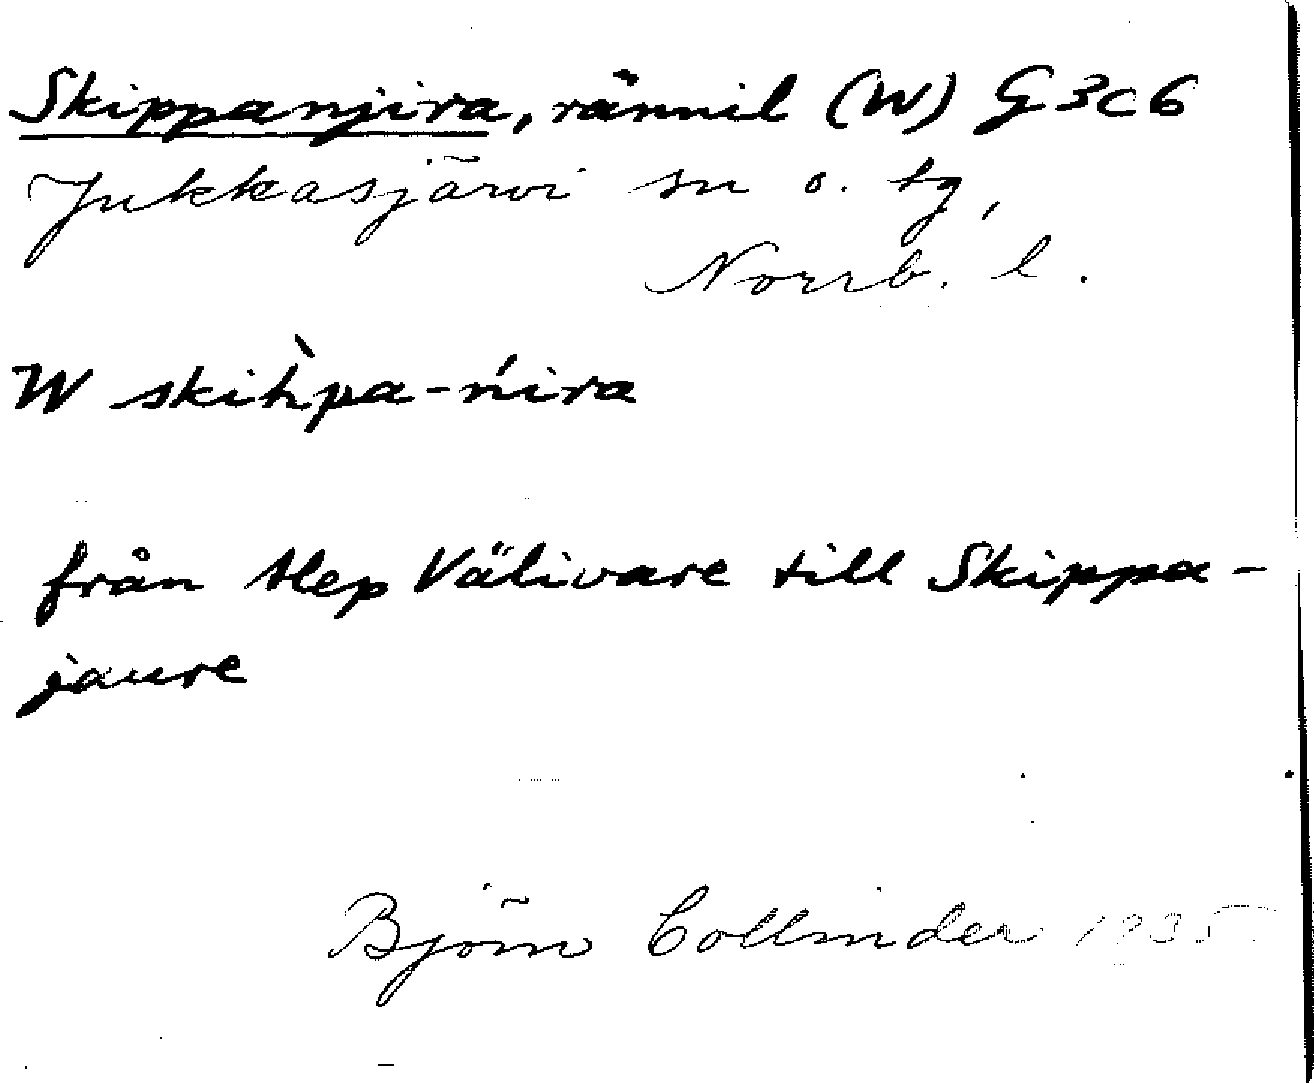 Skippanjira, rännil (W) G3c6
Jukkasjärvi sn o. tg,
Norrb. l.
W skih̀pa-ńira
från Hep Välivare till Skippa-
jaure
Björn Collinder 1935